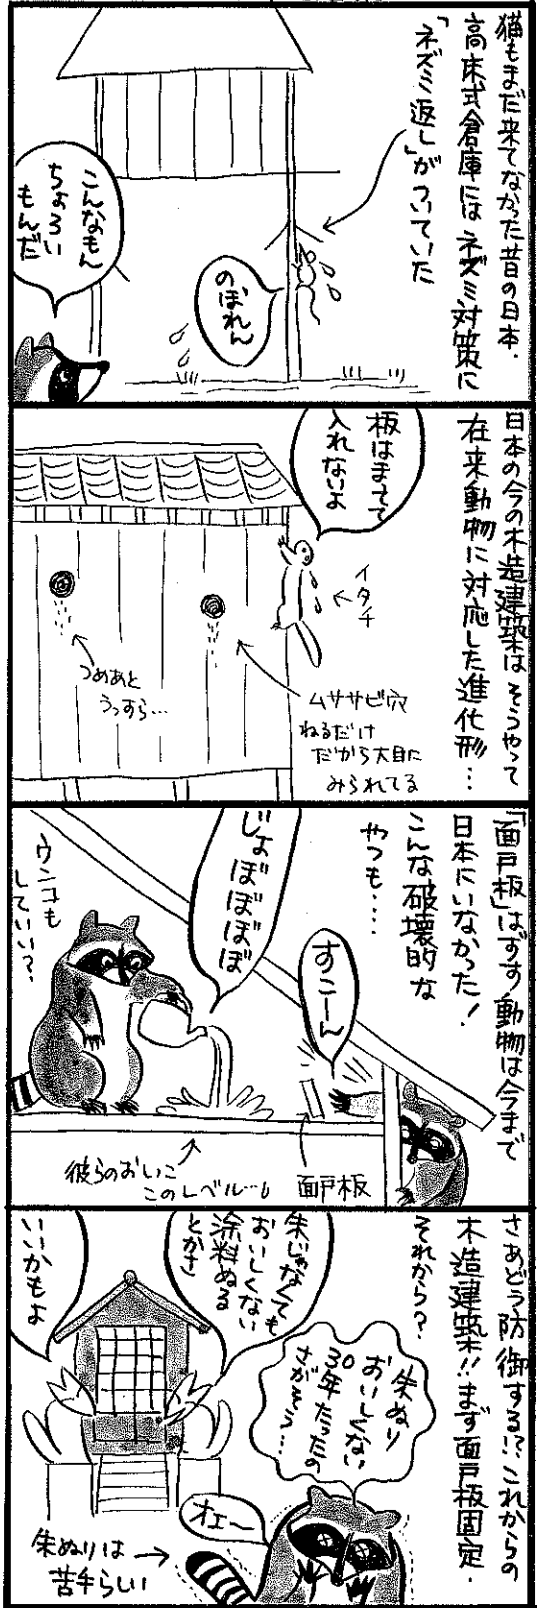 猫もまだ来てなかった昔の日本.
高床式倉庫にはネズミ対策に
「ネズミ返し」がついていた
のぼれん
こんなもん
ちょろい
もんだ
日本の今の木造建築は そうやって
在来動物に対応した進化形…
板はまてて
入れないよ
イタチ
つめあと
うっすら…
ムササビ穴
ねるだけ
だから大目に
みられてる
「面戸板」はずす動物は今まで
日本にいなかった!
こんな破壊的な
やつも…
すこーん
じょぼぼぼぼ
ウンコも
していい?
彼らのおしっこ
このレベル…
面戸板
さあどう防御する!? これからの
木造建築!! まず面戸板固定.
それから?
朱ぬり
おいしくない
30年たったの
さがそう…
朱じゃなくても
おいしくない
塗料ぬる
とかさ
いいかもよ
オエー
朱ぬりは
苦手らしい